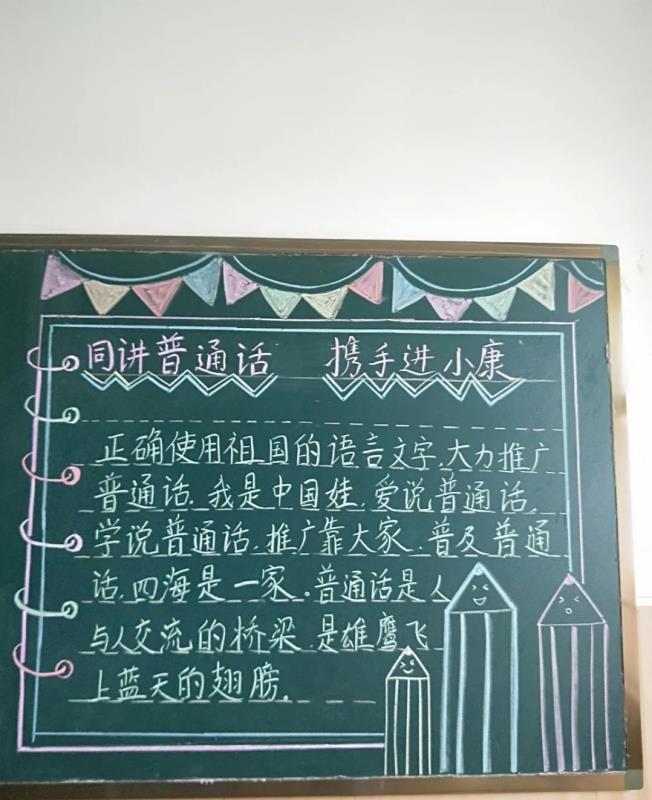 同讲普通话 携手进小康
正确使用祖国的语言文字.大力推广
普通话.我是中国娃.爱说普通话.
学说普通话.推广靠大家.普及普通
话.四海是一家.普通话是人
与人交流的桥梁.是雄鹰飞
上蓝天的翅膀.